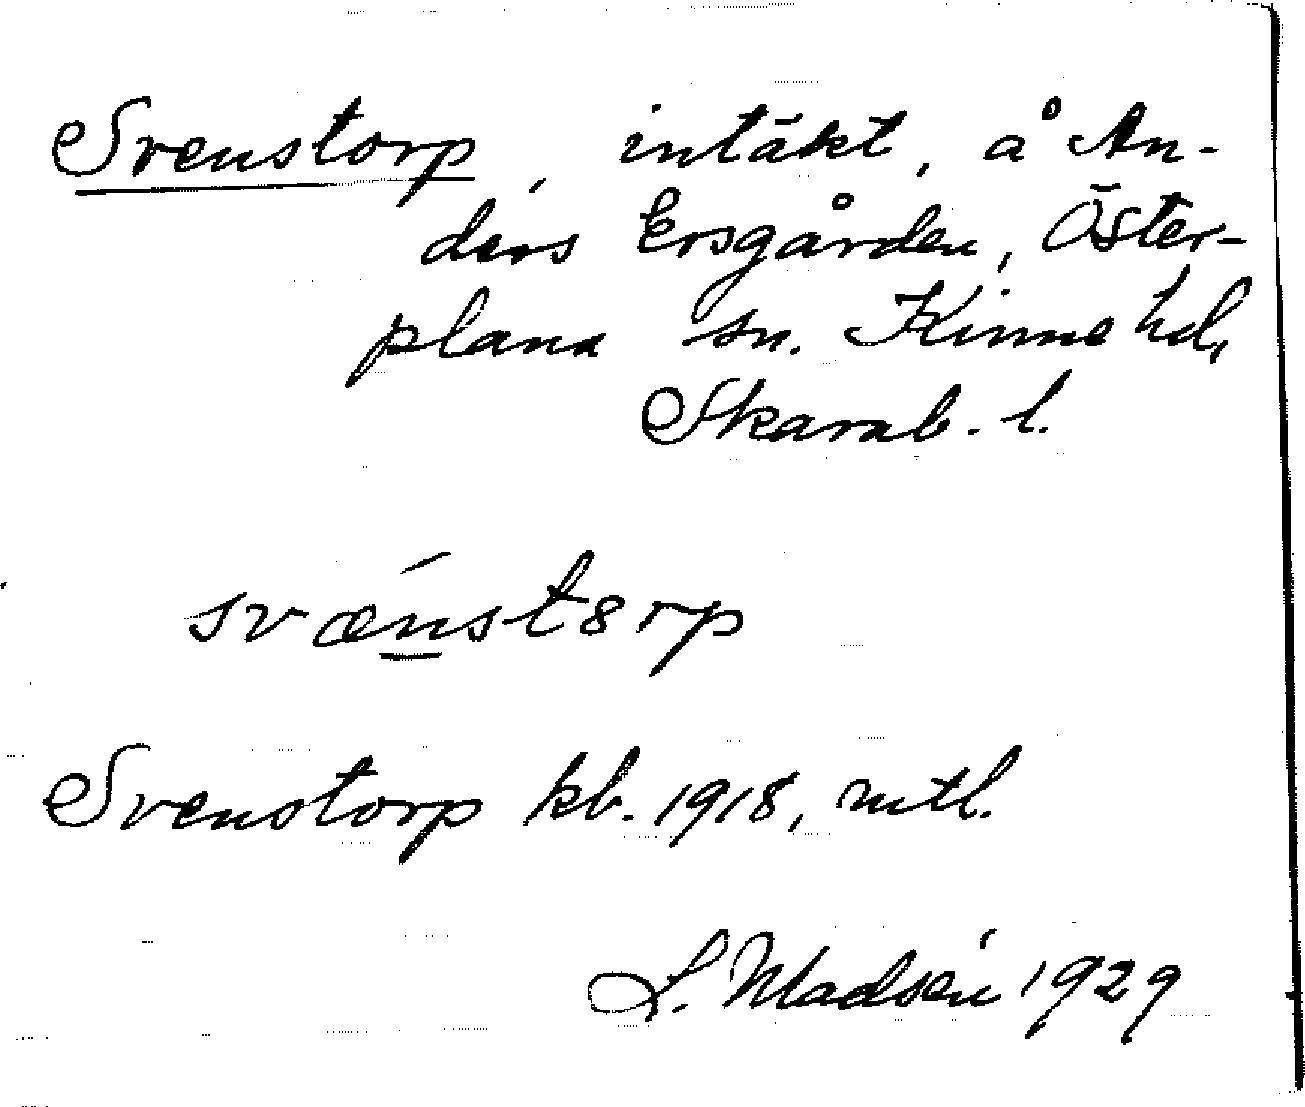 Svenstorp, intäkt, å An-
ders Ersgården, Öster-
plana sn. Kinne hd,
Skarab. l.
svænst8rp
Svenstorp kb. 1918, mtl.
L. Madsén 1929